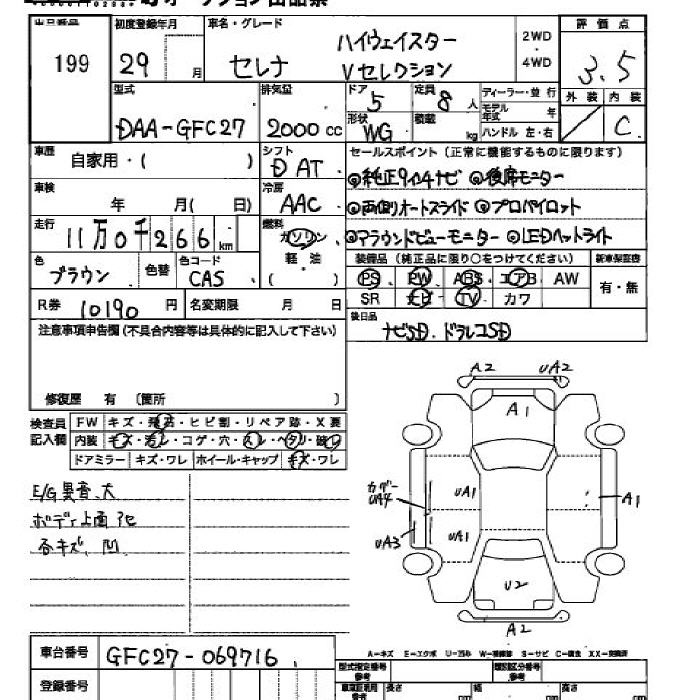 出品番号 199
初度登録年月 29 月
車名・グレード セレナ ハイウェイスター Vセレクション
2WD ・ 4WD
評価点 3.5
外装 内装 C
型式 DAA-GFC27
排気量 2000cc
ドア 5
形状 WG
定員 8人
積載 kg
ディーラー・並行
モデル年式 年
ハンドル 左・右
車歴 自家用・( )
シフト D AT
セールスポイント(正常に機能するものに限ります)
◎純正9インチナビ ◎後席モニター
車検 年 月( 日)
冷房 AAC
◎両側オートスライド ◎プロパイロット
走行 11万0千266km
燃料 ガソリン 軽油 ( )
◎アラウンドビューモニター ◎LEDヘットライト
色 ブラウン 色替
色コード CAS
装備品(純正品に限り○をつけてください)
新車保証書 有・無
PS PW ABS エアB AW
SR ナビ TV カワ
R券 10190 円
名変期限 月 日
後日品 ナビSD.ドラレコSD
注意事項申告欄(不具合内容等は具体的に記入して下さい)
修復歴 有 〔箇所 〕
検査員記入欄
FW キズ・飛石・ヒビ割・リペア跡・X要
内装 キズ・汚レ・コゲ・穴・スレ・ヘタリ・破レ
ドアミラー キズ・ワレ ホイール・キャップ キズ・ワレ
E/G異音、大
ボディ上面
各キズ、凹
A2 UA2
A1
UA1
UA4
A1
UA3
UA1
U2
A2
A…キズ E…エクボ U…凹み W…補修跡 S…サビ C…腐食 XX…交換済
車台番号 GFC27-069716
登録番号
型式指定番号 参考
類別区分番号 参考
長さ cm 幅 cm 高さ cm